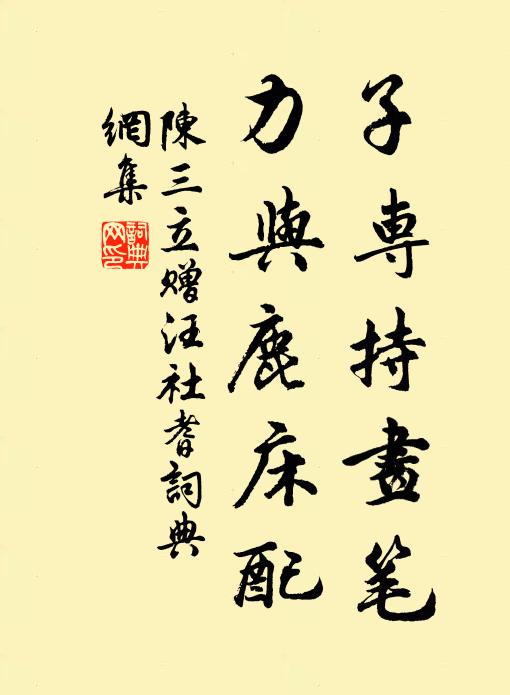 子專持畫笔
力與鹿床配
陳三立贈汪社耆詞典
網集
詞典
网印